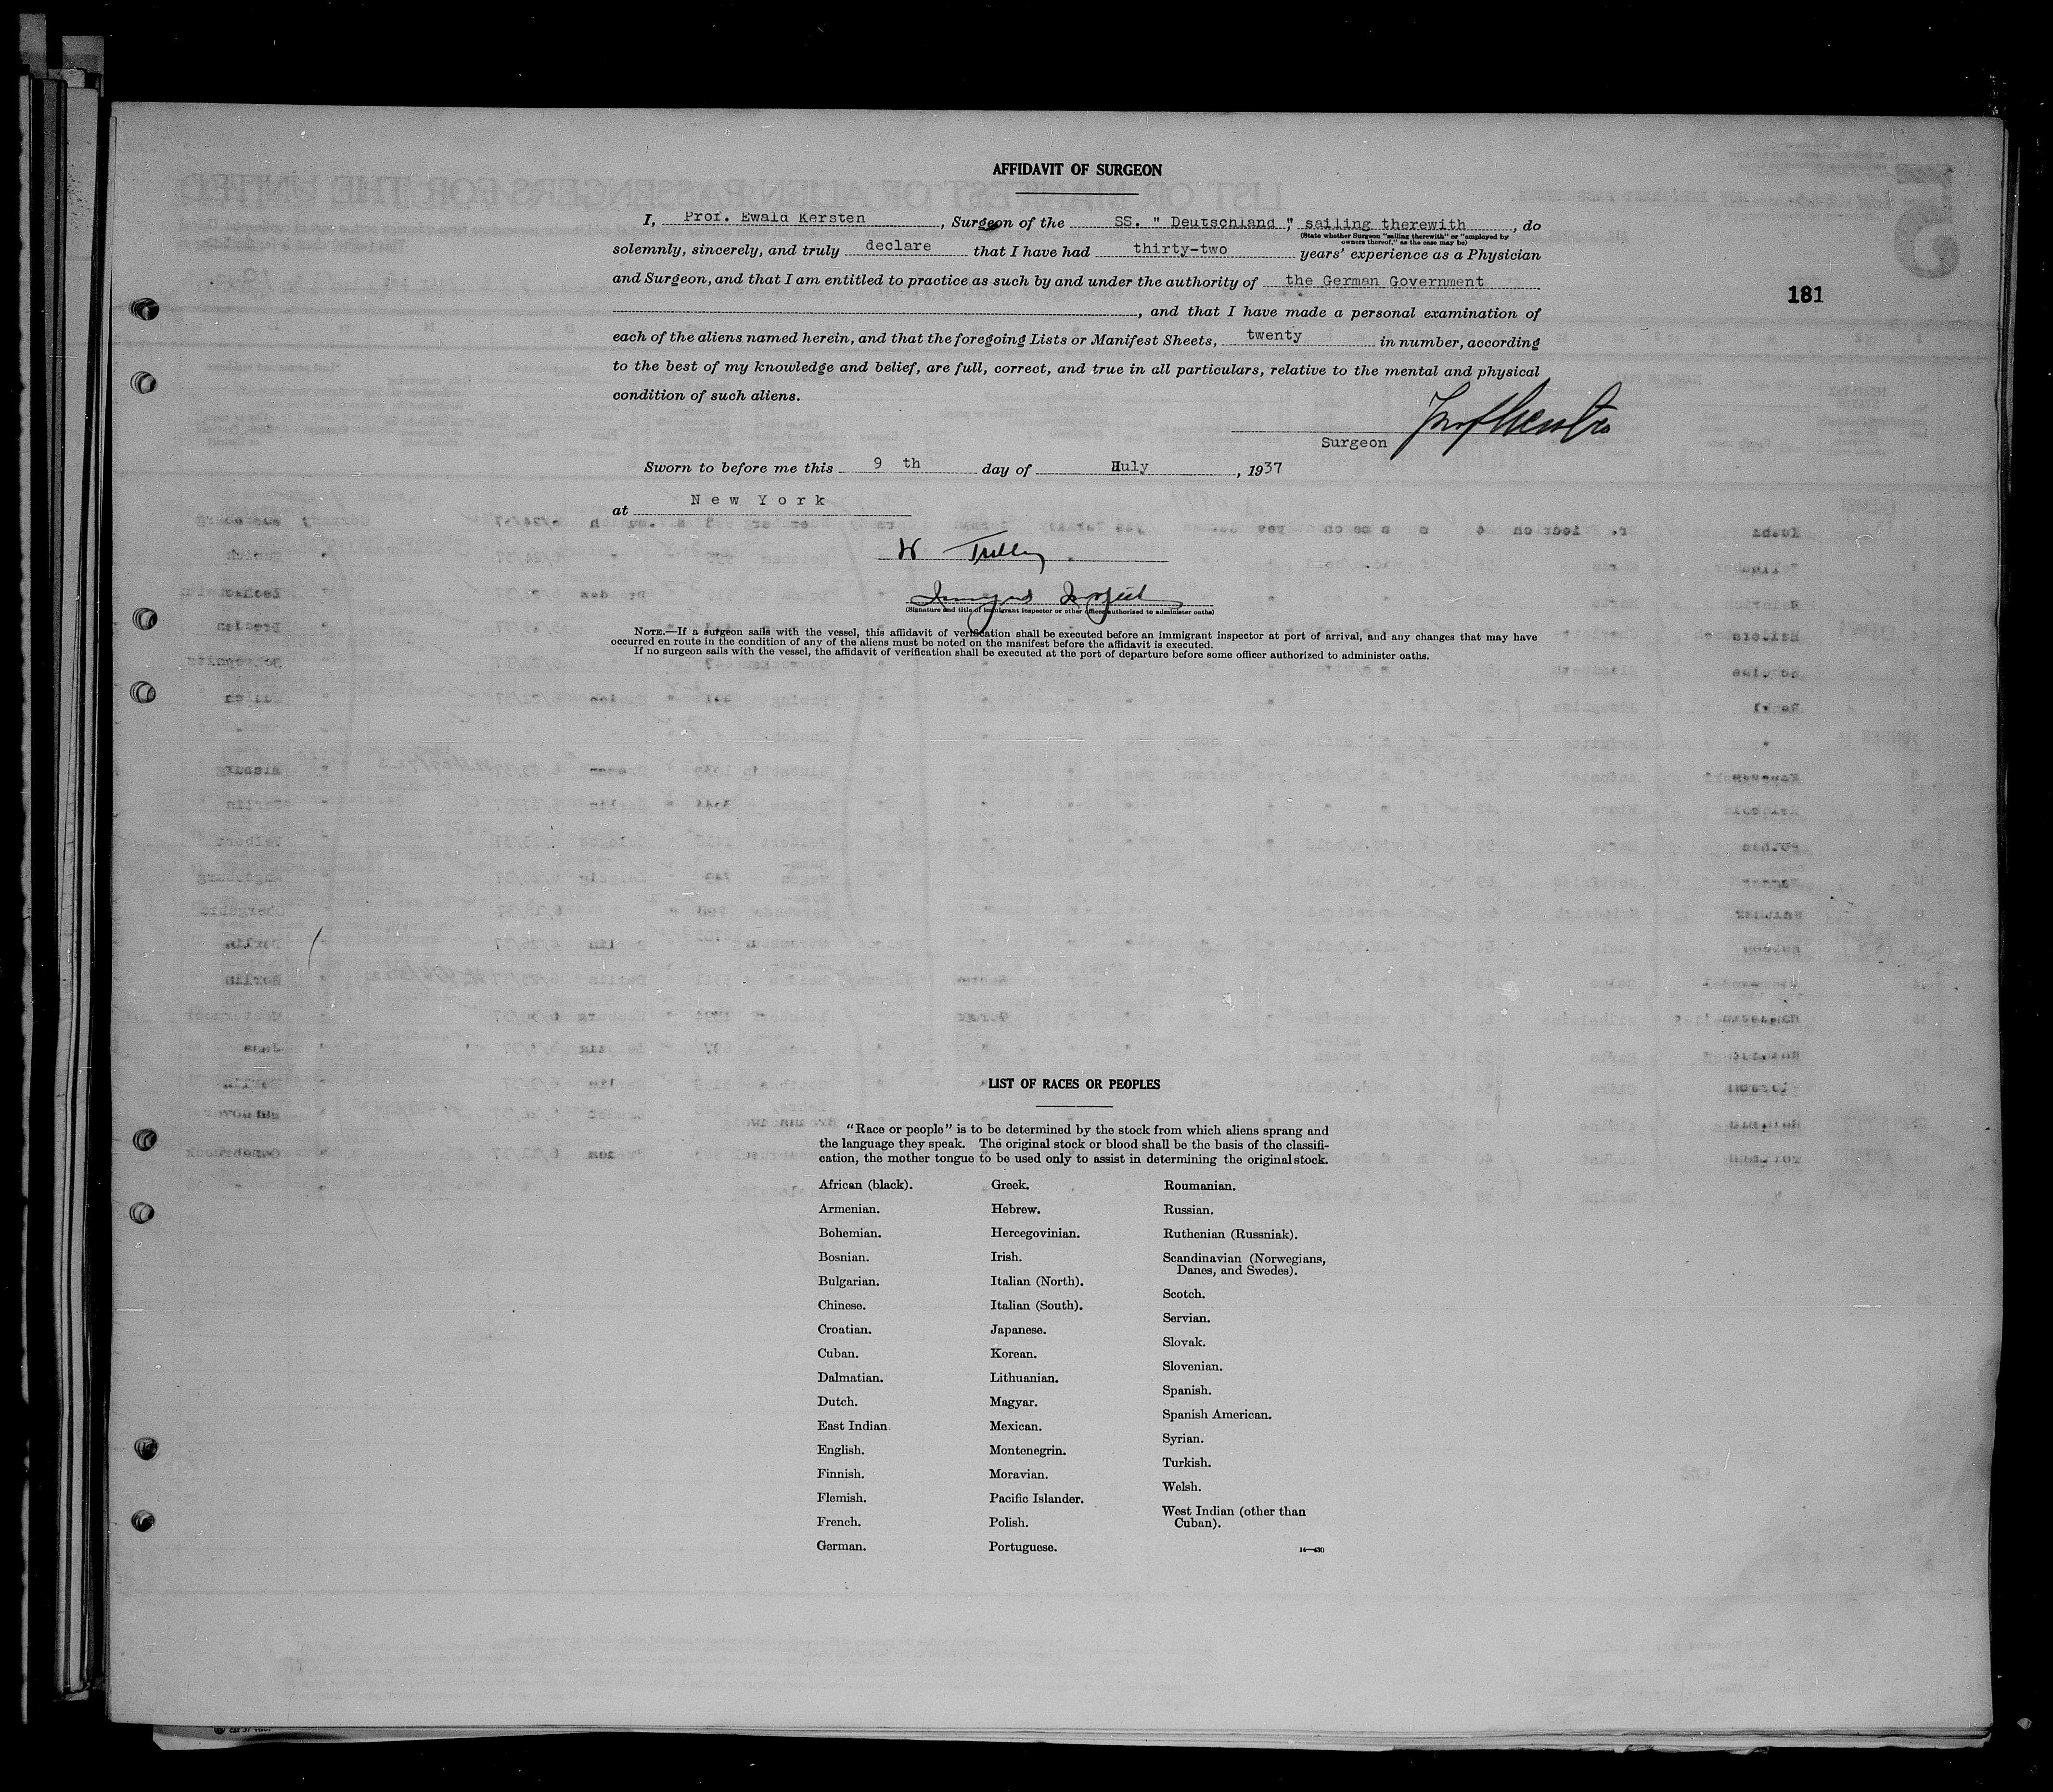 AFFIDAVIT OF SURGEON
I, Prof. Ewald Kersten, Surgeon of the SS. " Deutschland ", sailing therewith, do
(State whether Surgeon "sailing therewith" or "employed by
owners thereof," as the case may be)
solemnly, sincerely, and truly declare that I have had thirty-two years' experience as a Physician
and Surgeon, and that I am entitled to practice as such by and under the authority of the German Government
181
, and that I have made a personal examination of
each of the aliens named herein, and that the foregoing Lists or Manifest Sheets, twenty in number, according
to the best of my knowledge and belief, are full, correct, and true in all particulars, relative to the mental and physical
condition of such aliens.
Surgeon
Sworn to before me this 9 th day of July, 1937
at New York
W
(Signature and title of immigrant inspector or other officer authorized to administer oaths)
NOTE.—If a surgeon sails with the vessel, this affidavit of verification shall be executed before an immigrant inspector at port of arrival, and any changes that may have
occurred en route in the condition of any of the aliens must be noted on the manifest before the affidavit is executed.
If no surgeon sails with the vessel, the affidavit of verification shall be executed at the port of departure before some officer authorized to administer oaths.
LIST OF RACES OR PEOPLES
"Race or people" is to be determined by the stock from which aliens sprang and
the language they speak. The original stock or blood shall be the basis of the classifi-
cation, the mother tongue to be used only to assist in determining the original stock.
African (black).
Armenian.
Bohemian.
Bosnian.
Bulgarian.
Chinese.
Croatian.
Cuban.
Dalmatian.
Dutch.
East Indian
English.
Finnish.
Flemish.
French.
German.
Greek.
Hebrew.
Hercegovinian.
Irish.
Italian (North).
Italian (South).
Japanese.
Korean.
Lithuanian.
Magyar.
Mexican.
Montenegrin.
Moravian.
Pacific Islander.
Polish.
Portuguese.
Roumanian.
Russian.
Ruthenian (Russniak).
Scandinavian (Norwegians,
Danes, and Swedes).
Scotch.
Servian.
Slovak.
Slovenian.
Spanish.
Spanish American.
Syrian.
Turkish.
Welsh.
West Indian (other than
Cuban).
14—430